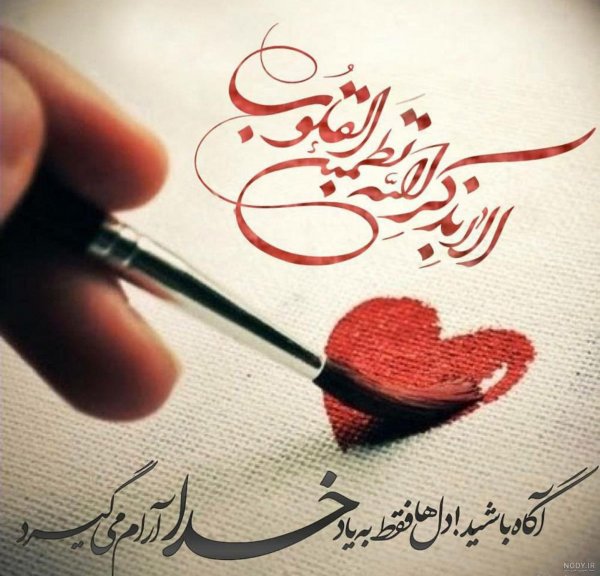 الا بذکر الله تطمئن القلوب
آگاه باشید! دل‌ها فقط به یاد خدا آرام می‌گیرد
NODY.IR